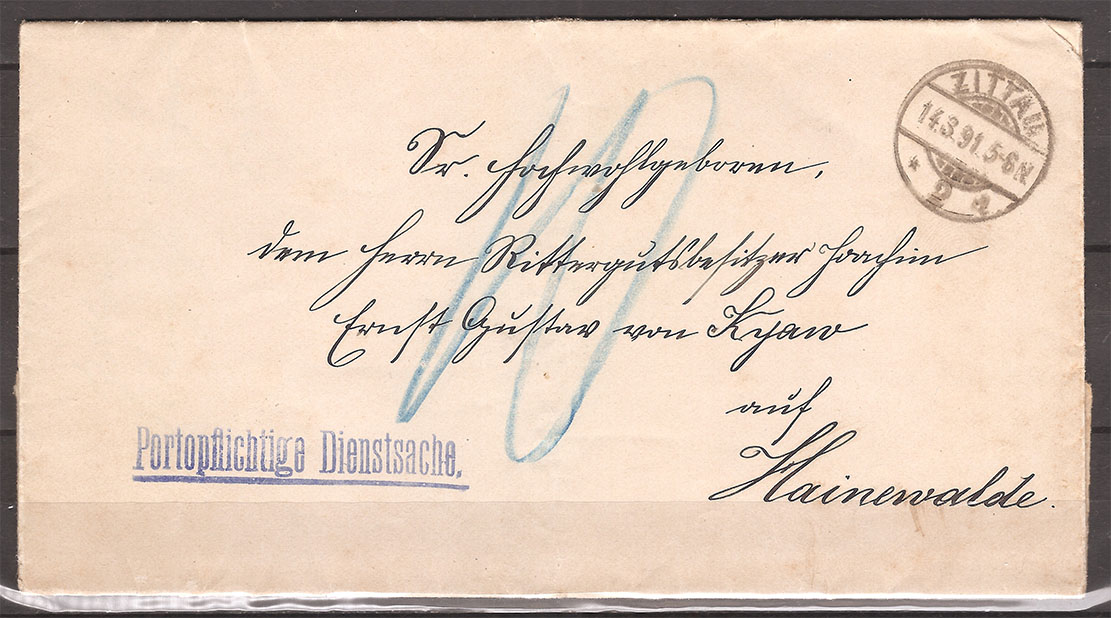 ZITTAU
14.3.91.5-6N
* 2 1
10
Sr. Hochwohlgeboren,
dem Herrn Rittergutsbesitzer Joachim
Ernst Gustav von Kyaw
auf
Hainewalde.
Portopflichtige Dienstsache.